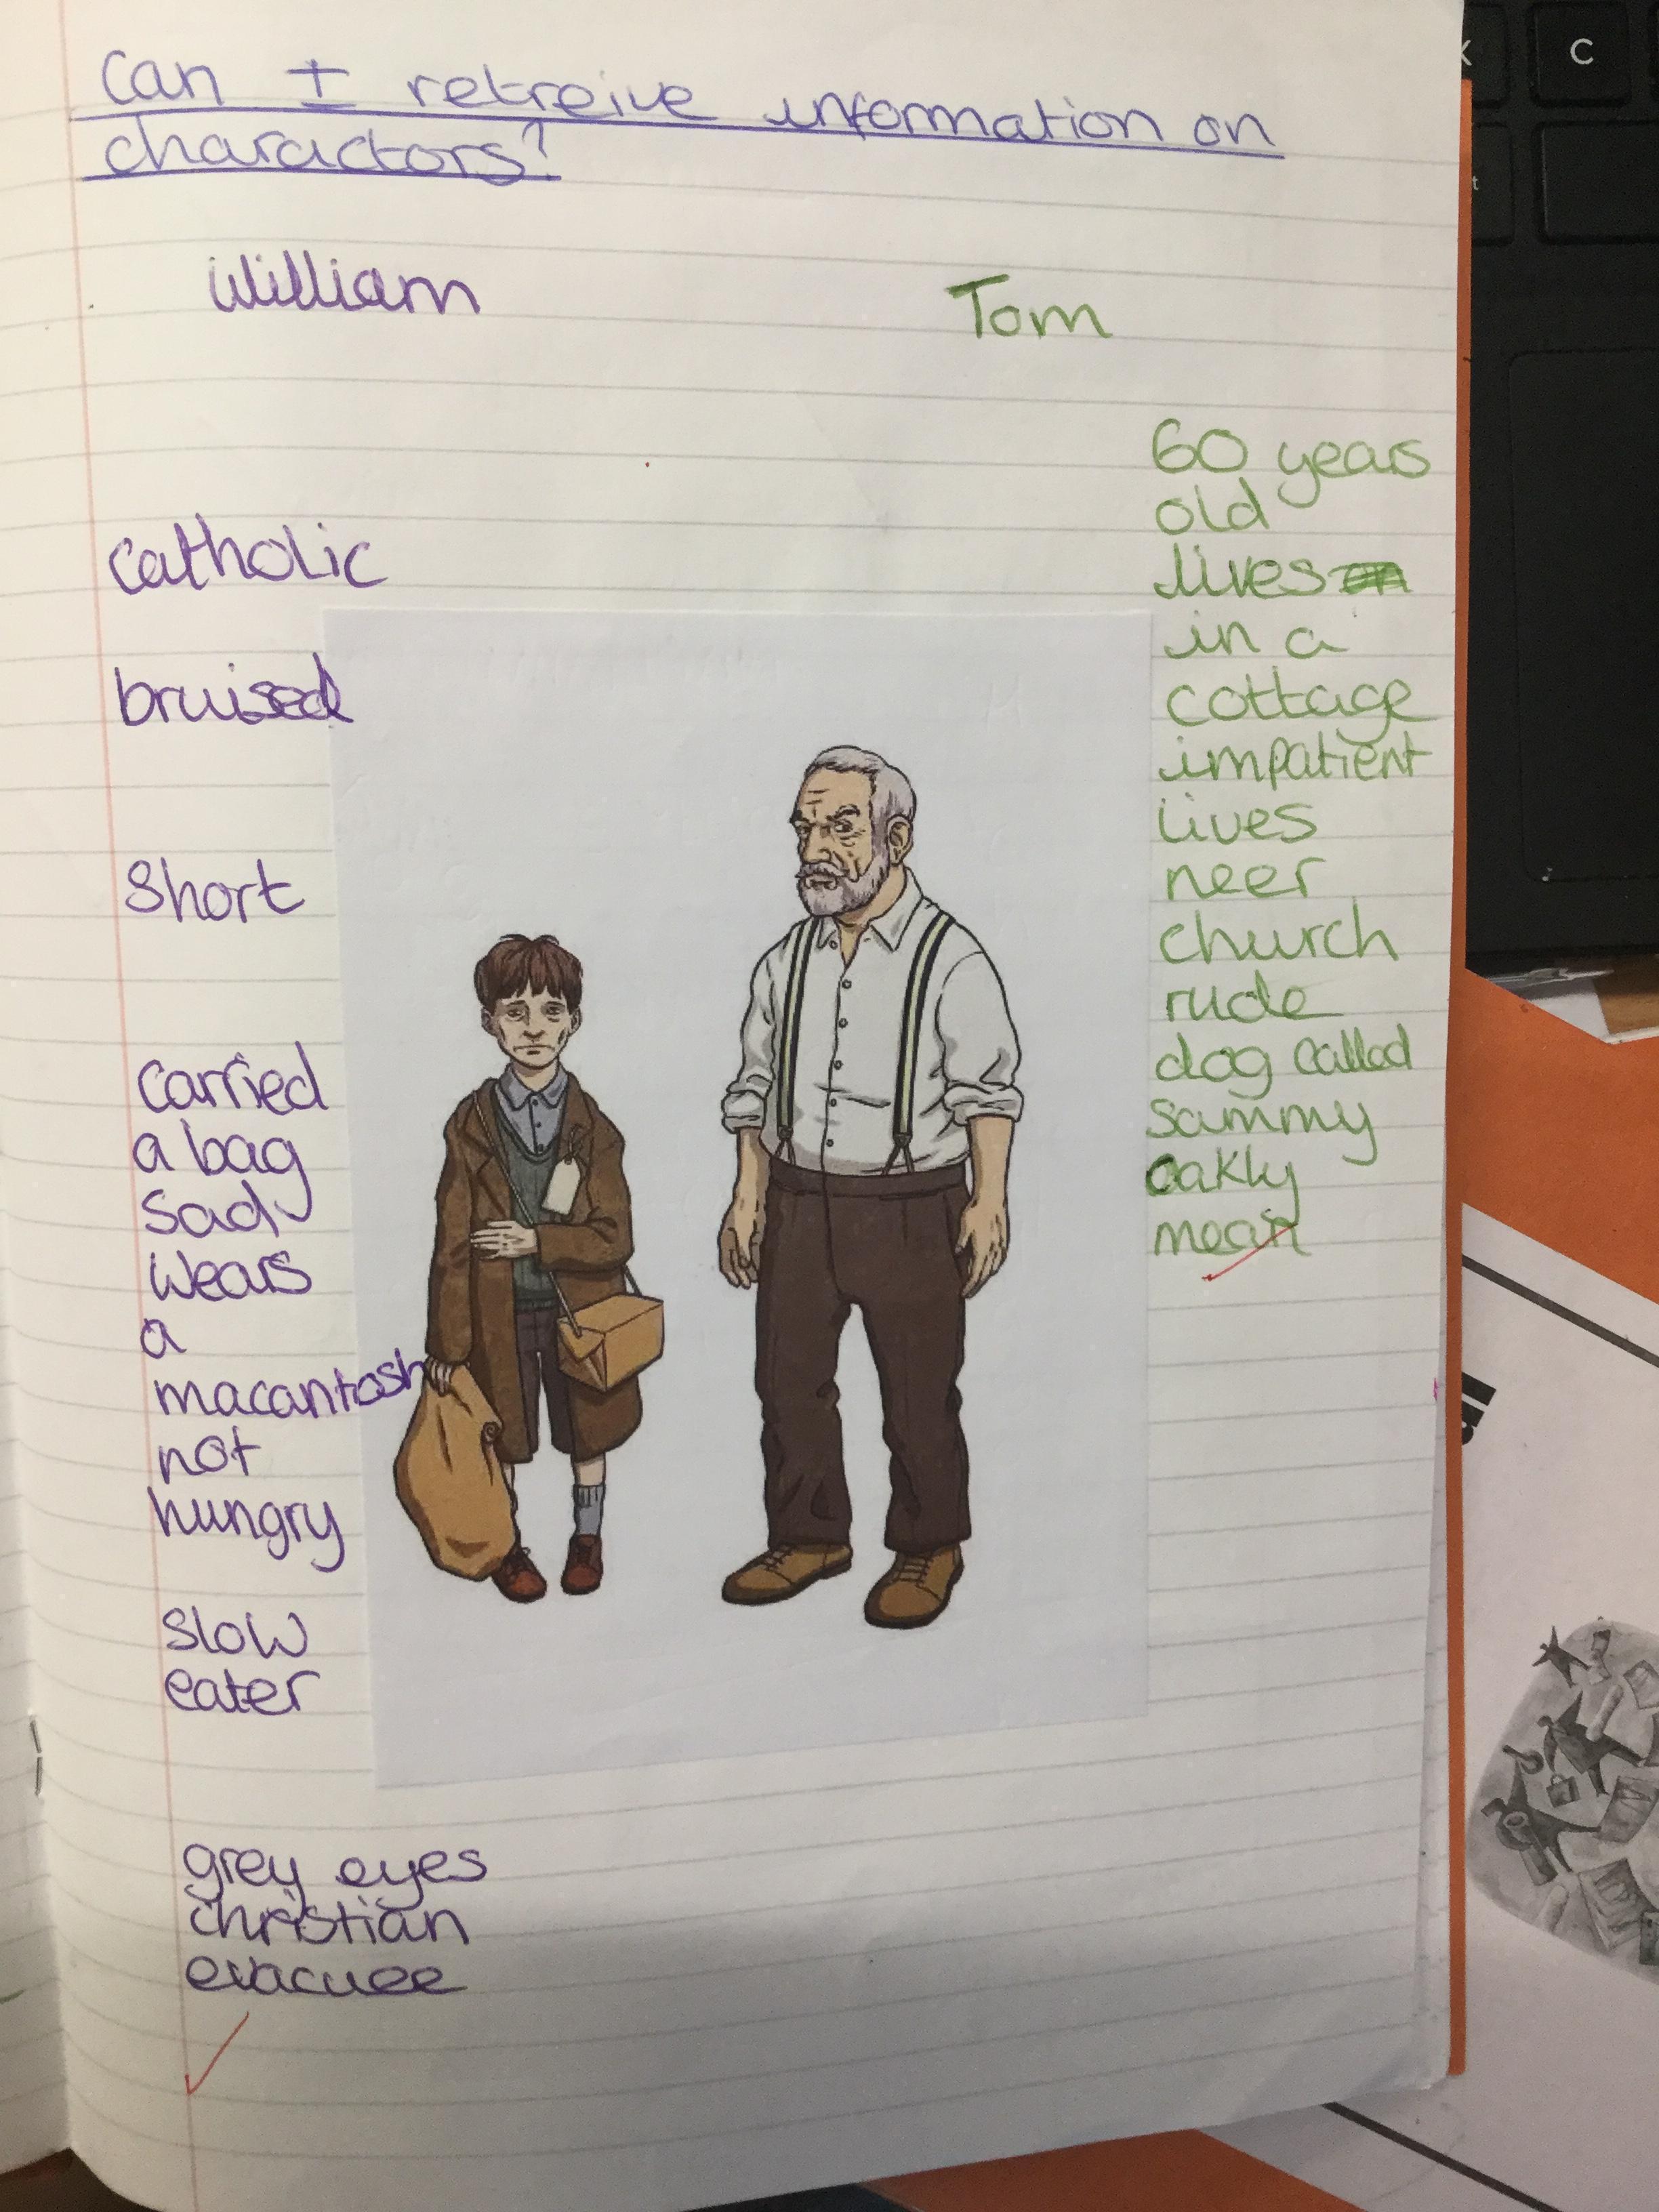 Can I retreive information on
charactors?
William
Tom
catholic
bruised
short
carried
a bag
sad
wears
a
macantosh
not
hungry
slow
eater
grey eyes
christian
evacuee
60 years
old
lives
in a
cottage
impatient
lives
neer
church
rude
dog called
sammy
oakly
mean
C